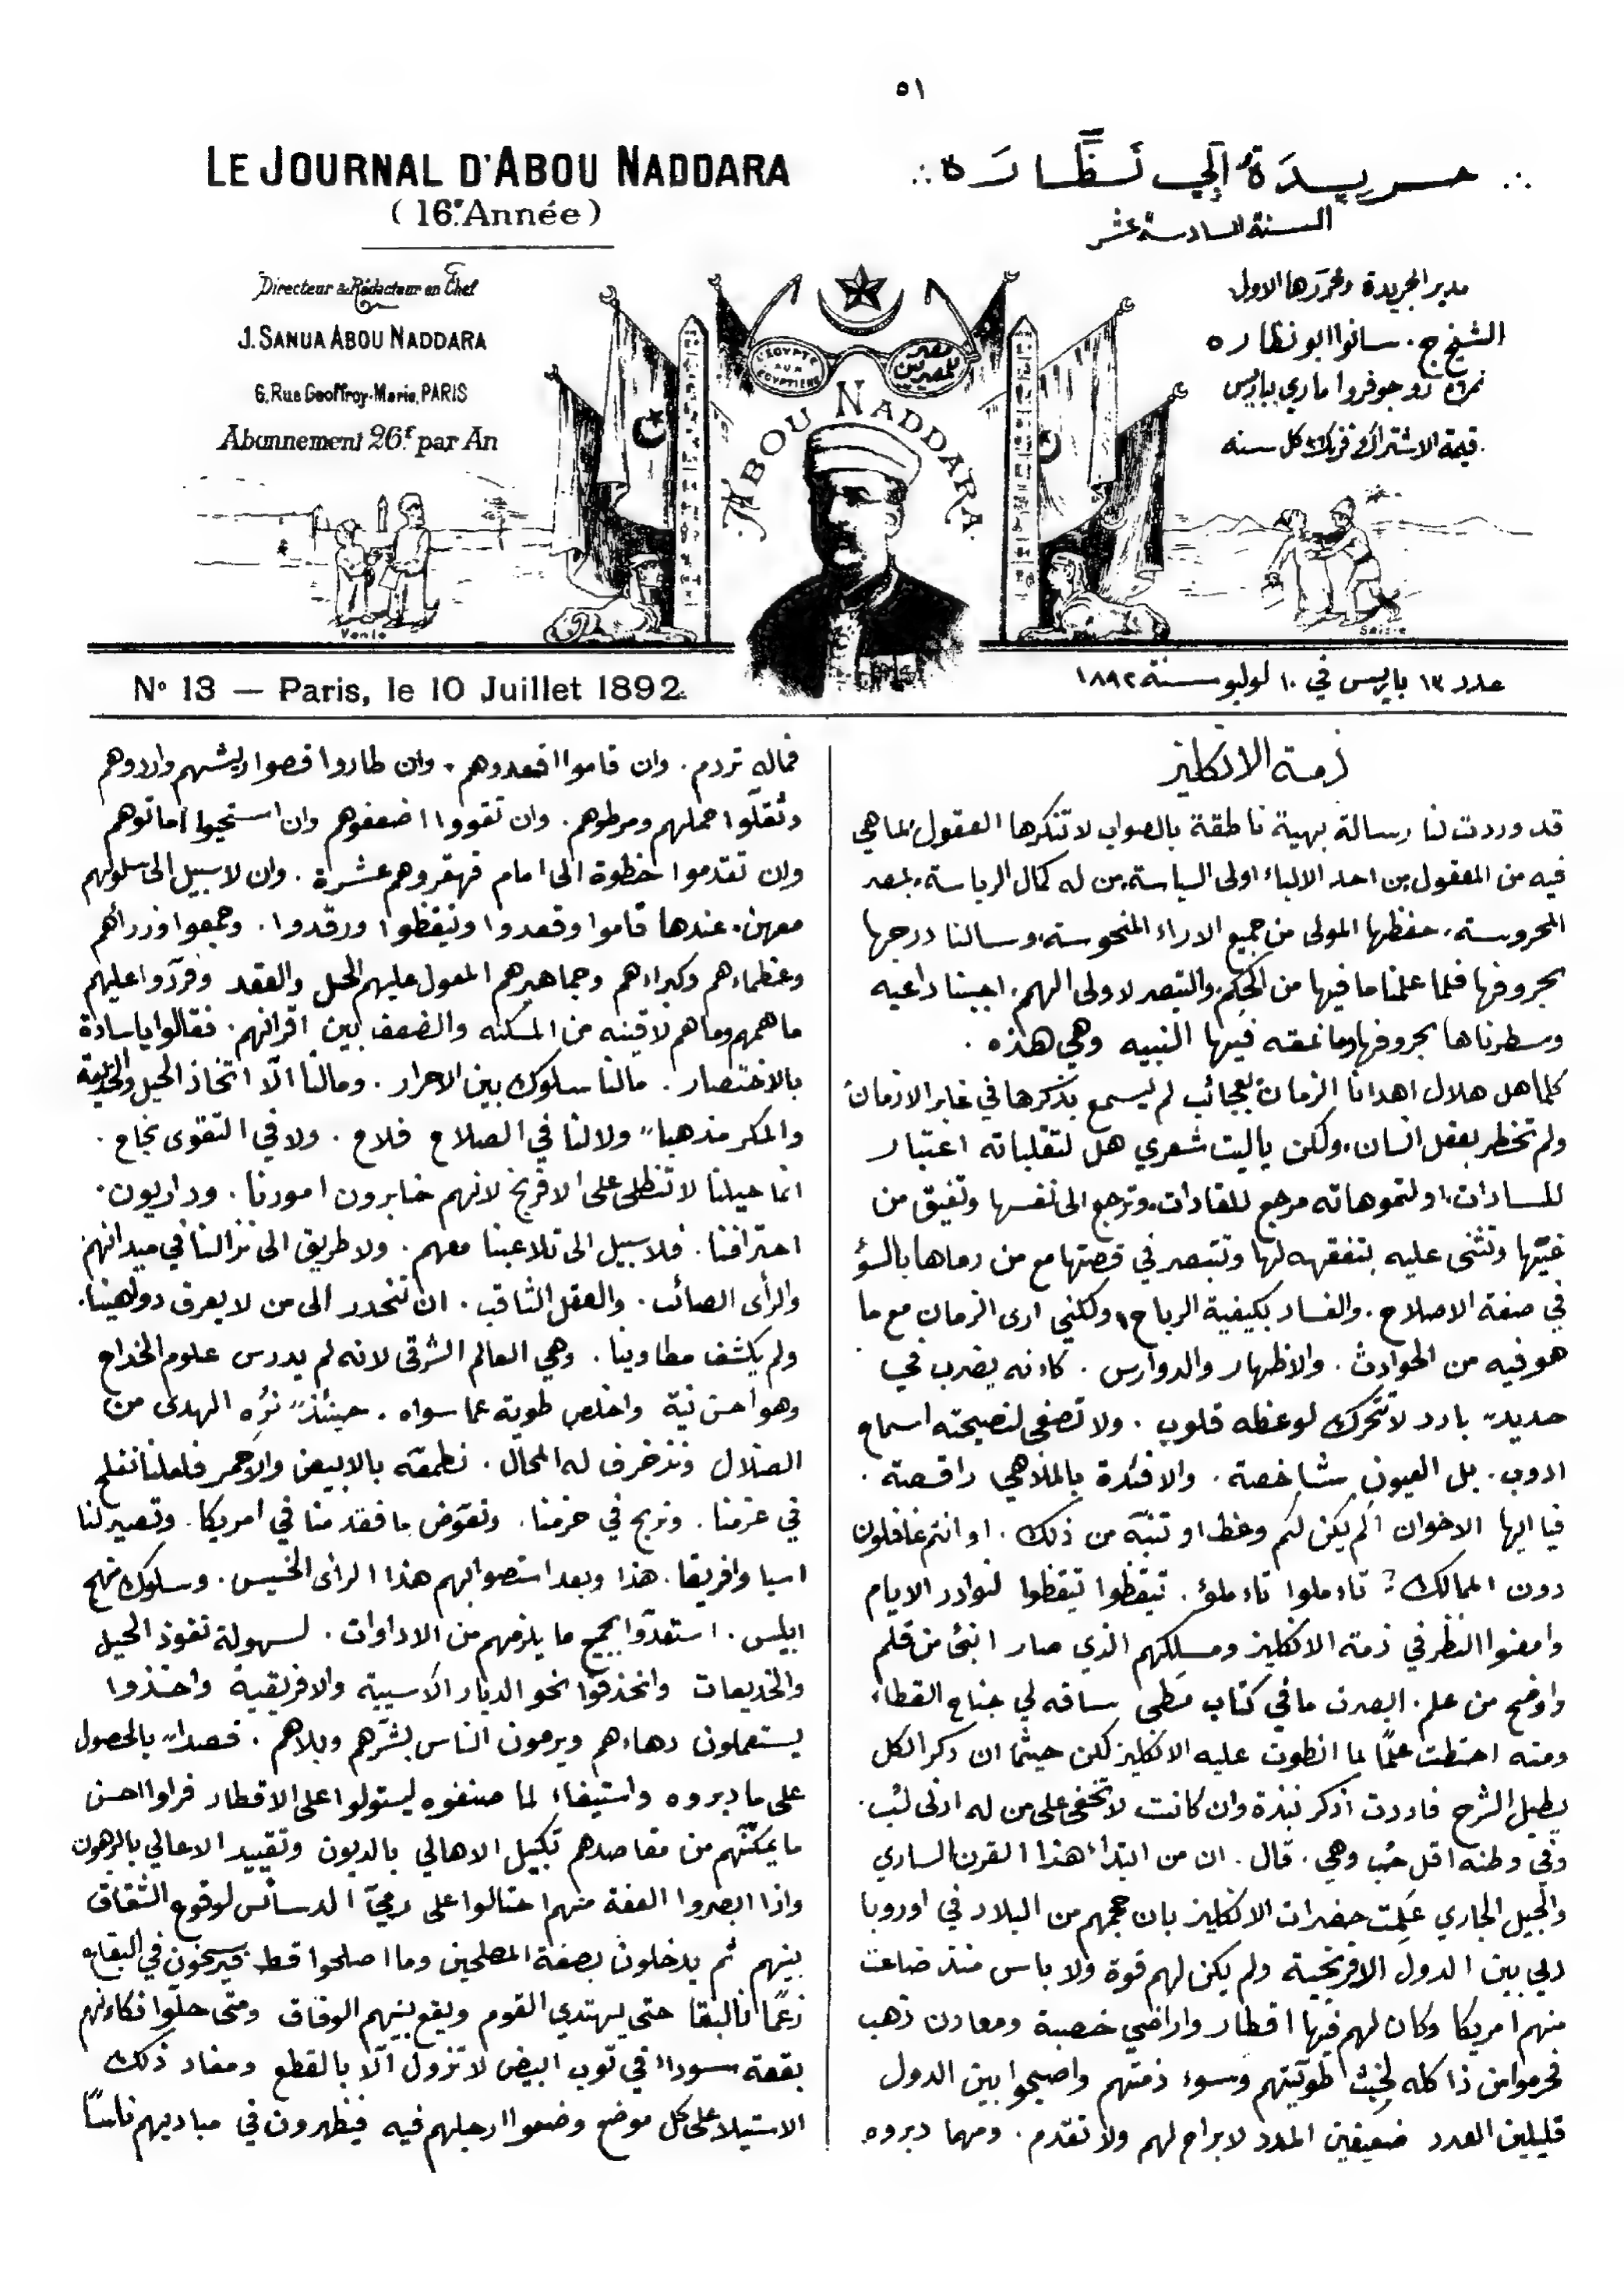 ٥١
LE JOURNAL D'ABOU NADDARA
(16e Année)
Directeur & Rédacteur en Chef
J. SANUA ABOU NADDARA
6, Rue Geoffroy-Marie, PARIS
Abonnement 26f par An
∴ جريدة ابي نظّارة ∴
السنة السادسة عشر
مدير الجريدة ومحررها الاول
الشيخ ج. سانوا ابو نظاره
نمرة ٦ رو جوفروا ماري بباريس
قيمة الاشتراك ٢٦ فرنك كل سنه
L'EGYPTE AUX EGYPTIENS
مصر للمصريين
ABOU NADDARA
Vente
Saisie
No 13 — Paris, le 10 Juillet 1892.
عدد ١٣ باريس في ١٠ لوليو سنة ١٨٩٢
ذمة الانكليز
قد وردت لنا رسالة بهية ناطقة بالصواب لا تنكرها العقول لما هي
فيه من المعقول من احد الالباء اولى السياسة من له كمال الرياسة بمصر
المحروسة حفظها المولى من جميع الاراء المنحوسة وسالنا درجها
بحروفها فلما علمنا ما فيها من الحكم والتبصر لاولى الهمم اجبنا داعيه
وسطرناها بحروفها وما نمقه فيها النبيه وهي هذه .
كلما هل هلال اهدانا الزمان بعجائب لم يسمع بذكرها في غابر الازمان
ولم تخطر بعقل انسان ولكن ياليت شعري هل لتقلباته اعتبار
للسادات او لتموهاته مرجع للقادات وترجع الى نفسها وتفيق من
غيّها وتثنى عليه بتفقهه لها وتتبصر في قصتها مع من رماها بالسؤ
في صفة الاصلاح . والفساد بكيفية الرباح ولكني ارى الزمان مع ما
هو فيه من الحوادث . والاظهار والدوارس . كاءنه يضرب في
حديد بارد لا تتحرك لوعظه قلوب . ولا تصغى لنصيحته اسماع
ادوب . بل العيون شاخصة . والافئدة بالملاهي راقصة .
فيا ايها الاخوان الم يكن لكم وعظ او تنبّه من ذلك . او انتم غافلون
دون الممالك ? تاءملوا تاءملوْ . تيقظوا تيقظوا لنوادر الايام
وامعنوا النظر في ذمة الانكليز ومسلكهم الذي صار انبئ من قلم
واوضح من علم . ابصرت ما في كتاب مطى ساقه لي جناح القطاء
ومنه احتطت علمًا لما انطوت عليه الانكليز لكن حيثما ان ذكر الكل
يطيل الشرح فاردت اذكر نبذة وان كانت لا تخفى على من له ادنى لبّ .
وفي وطنه اقل حب وهي . قال . ان من ابتداء هذا القرن الساري
والجيل الجاري عَلِمت حضرات الانكليز بان حجمهم من البلاد في اوروبا
دلي بين الدول الافرنجية ولم يكن لهم قوة ولا باس منذ ضاعت
منهم امريكا وكان لهم فيها اقطار واراضي خصبة ومعادن ذهب
فحرموا من ذا كله لخبث طويتهم وسوء ذمتهم واصبحوا بين الدول
قليلين العدد ضعيفين المدد لا براح لهم ولا تقدّم . ومهما دبروه
فماله تردم . وان قاموا اقعدوهم . وان طاروا قصوا ريشهم واردوهم
وثقلّوا حملهم ومرطوهم . وان تقووا اضعفوهم وان استحيوا اماتوهم
وان تقدموا خطوة الى امام قهقروهم عشرة . وان لا سبيل الى سلوكهم
معهن . عندها قاموا وقعدوا وتيقظوا ورقدوا . وجمعوا وزراءهم
وعظماءهم وكبراءهم وجماهيرهم المعول عليهم الحل والعقد وقرّروا عليهم
ما همهم وما هم لاقينه من المسكنه والضعف بين اقرانهم . فقالوا ياسادة
بالاختصار . مالنا سلوك بين الاحرار . ومالنا الّا اتخاذ الحيل والخديعة
والمكر مذهبا ولا لنا في الصلاح فلاح . ولا في التقوى نجاح .
انما حيلنا لا تنطلى على الافرنج لانهم خابرون امورنا . وداريون .
احترافنا . فلا سبيل الى تلاعبنا معهم . ولا طريق الى نزالنا في ميدانهم
والرأى الصائب . والعقل الثاقب . ان ننحدر الى من لا يعرف دواهينا .
ولم يكشف مطاوينا . وهي العالم الشرقي لانه لم يدرس علوم الخداع
وهو احسن نية واخلص طوية عما سواه . حينئذ نرُه الهدى من
الضلال ونزخرف له المحال . نطمعّه بالابيض والاحمر فلعلنا نفلح
في عزمنا . ونربح في حزمنا . ونعوّض ما فقد منا في امريكا . وتصير لنا
اسيا وافريقا . هذا وبعد استصوابهم هذا الراى الخسيس . وسلوك نهج
ابليس . استعدّوا بجميع ما يلزمهم من الاداوات . لسهولة نفوذ الحيل
والخديعات وانحذفوا نحو الديار الاسيية والافريقية واخذوا
يستعملون دهاءهم ويرمون الناس بشرّهم وبلاهم . قصدا بالحصول
على ما دبروه واستيفاء لما صنفوه ليستولوا على الاقطار فراوا احسن
ما يمكنّهم من مقاصدهم تكبيل الاهالي بالديون وتقييد الاعالي بالرهون
واذا ابصروا العفة منهم احتالوا على رميّ الدسائس لوقوع الشقاق
بينهم ثم يدخلون بصفة المصلحين وما اصلحوا قط فيرسخون في البقاء
زعمًا فالبقا حتى يهتدي القوم ويقع بينهم الوفاق ومتى حلّوا فكاءنهم
بقعة سوداء في ثوب ابيض لا تزول الّا بالقطع ومفاد ذلك
الاستيلا على كل موضع وضعوا ارجلهم فيه فيظهرون في مباديهم ناسًا